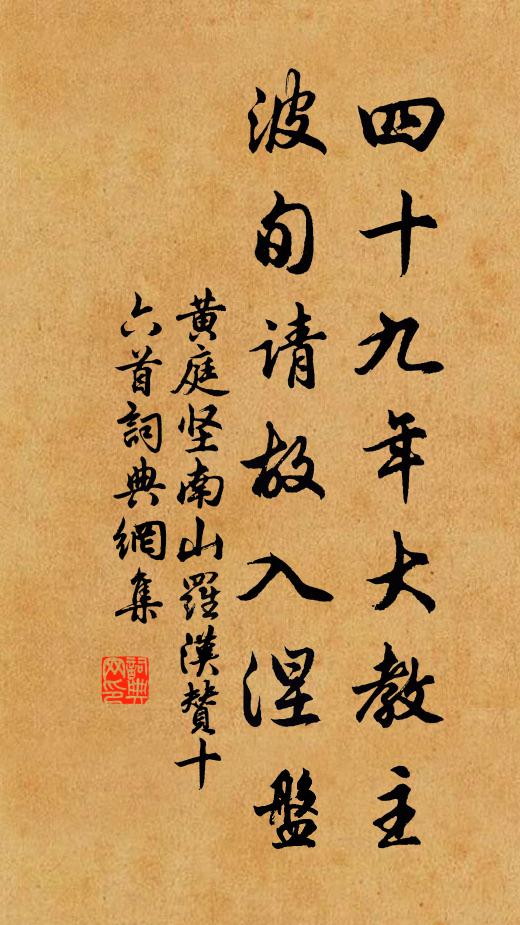 四十九年大教主
波旬请故入涅盤
黄庭坚南山羅漢贊十
六首詞典網集
詞典网印